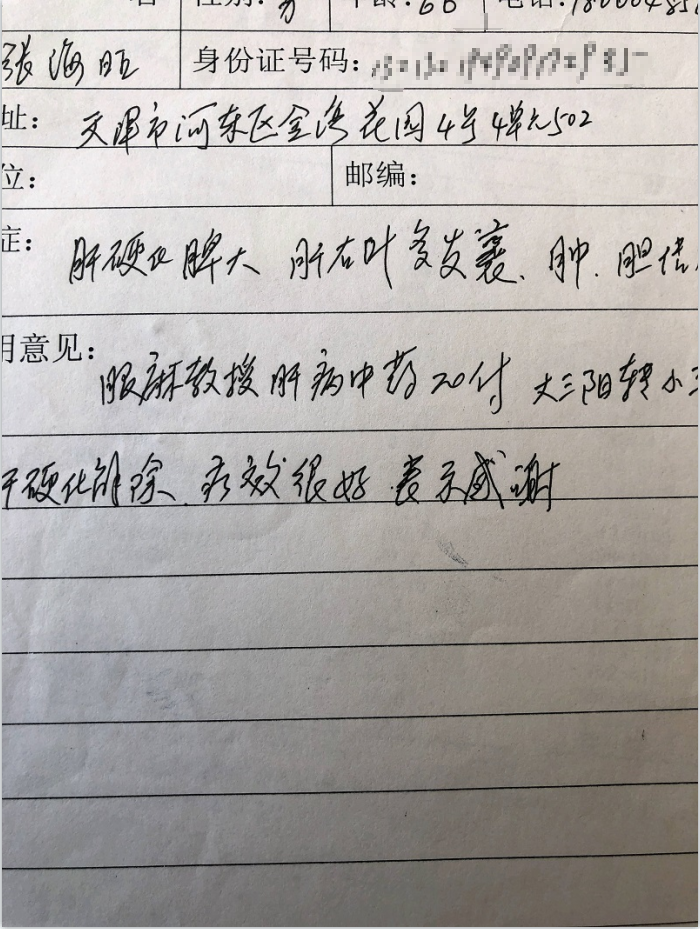 名 性别:男 年龄:66 电话:
张海旺 身份证号码:
址: 天津市河东区金湾花园4号4单元502
位: 邮编:
症: 肝硬化脾大 肝右叶多发囊、肿、胆结
用意见:
服麻教授肝病中药20付 大三阳转小三
肝硬化解除、疗效很好、表示感谢